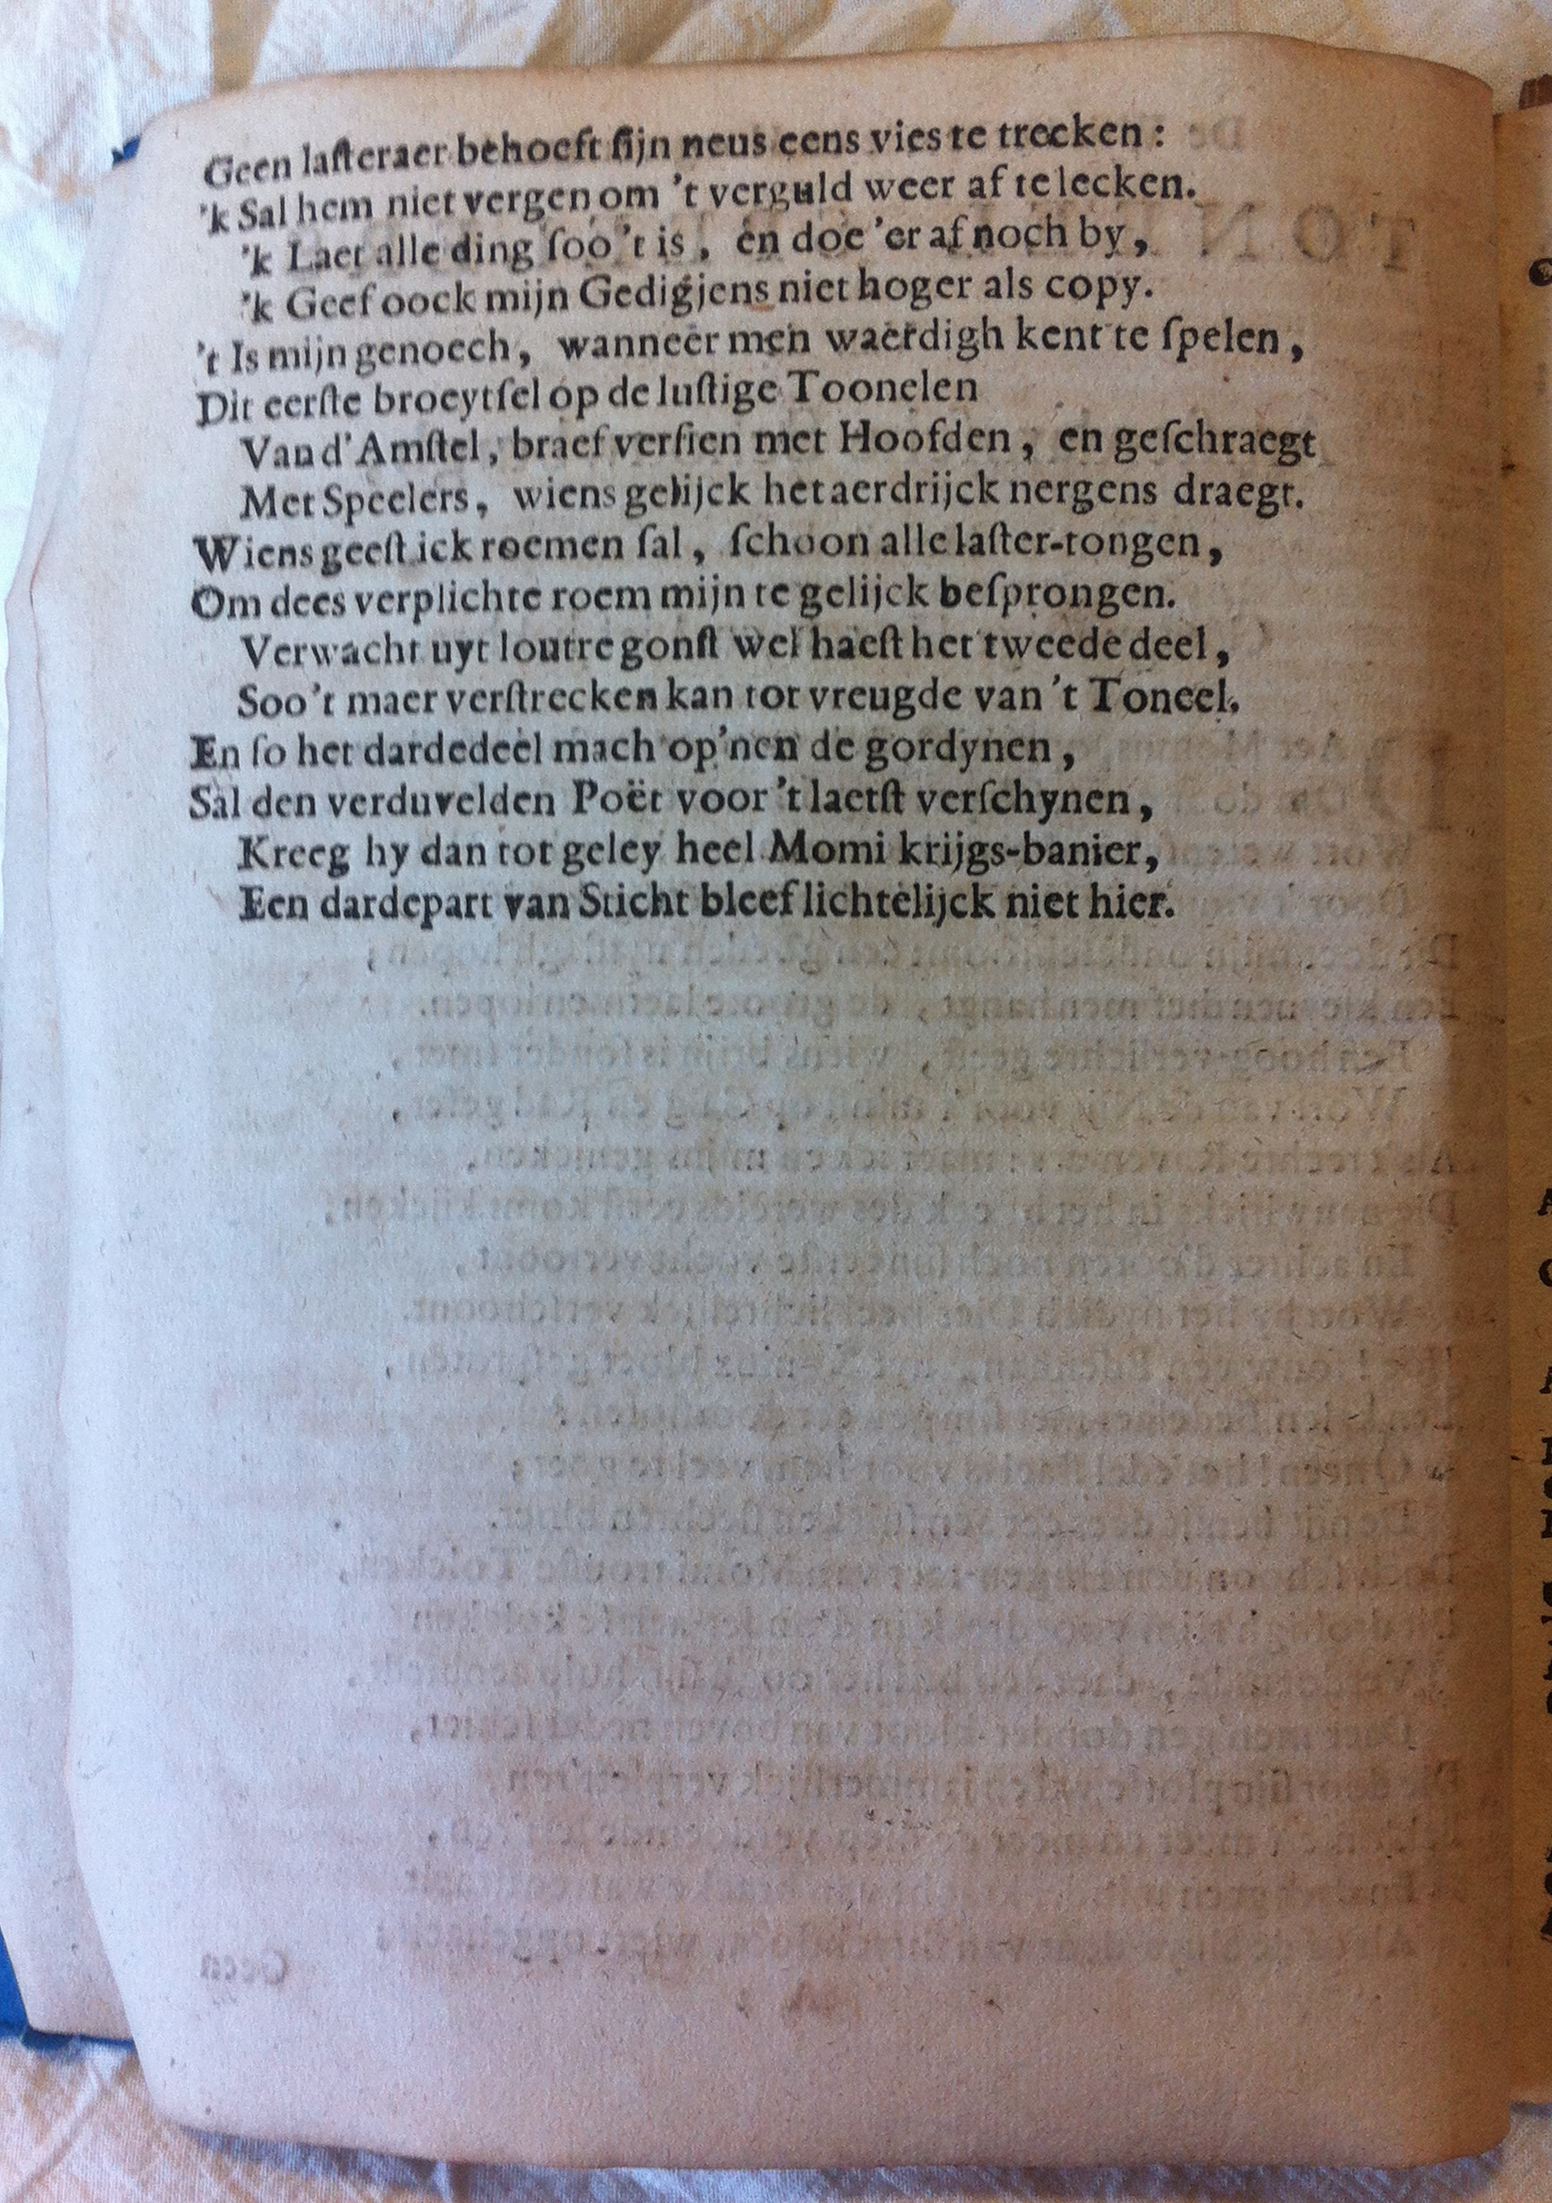 Geen laſteraer behoeft ſijn neus eens vies te trecken:
'k Sal hem niet vergen om 't verguld weer af te lecken.
'k Laet alle ding ſoo 't is, en doe 'er af noch by,
'k Geef oock mijn Gedigjens niet hoger als copy.
't Is mijn genoech, wanneer men waerdigh kent te ſpelen,
Dit eerſte broeytſel op de luſtige Toonelen
Van d'Amſtel, braef verſien met Hoofden, en geſchraegt
Met Speelers, wiens gelijck het aerdrijck nergens draegt.
Wiens geeſt ick roemen ſal, ſchoon alle laſter-tongen,
Om dees verplichte roem mijn te gelijck beſprongen.
Verwacht uyt loutre gonſt wel haeſt het tweede deel,
Soo 't maer verſtrecken kan tot vreugde van 't Toneel.
En ſo het darde deel mach op'nen de gordynen,
Sal den verduvelden Poët voor 't laetſt verſchynen,
Kreeg hy dan tot geley heel Momi krijgs-banier,
Een darde part van Sticht bleef lichtelijck niet hier.